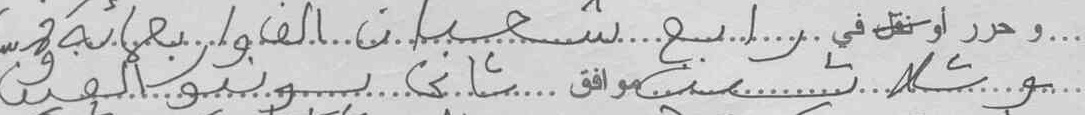 و حرر أو نقل في رابع شعبان الف و اربعمائة خمس
و ثلاثين موافق ثاني يونيو الفين